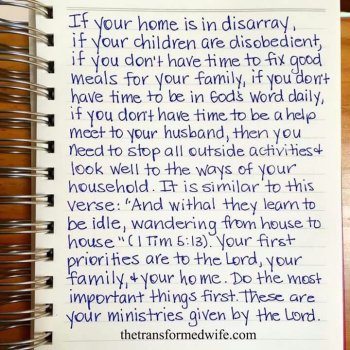 If your home is in disarray,
if your children are disobedient,
if you don't have time to fix good
meals for your family, if you don't
have time to be in God's word daily,
if you don't have time to be a help
meet to your husband, then you
need to stop all outside activities &
look well to the ways of your
household. It is similar to this
verse: "And withal they learn to
be idle, wandering from house to
house" (1 Tim 5:13). Your first
priorities are to the Lord, your
family, & your home. Do the most
important things first. These are
your ministries given by the Lord.
thetransformedwife.com